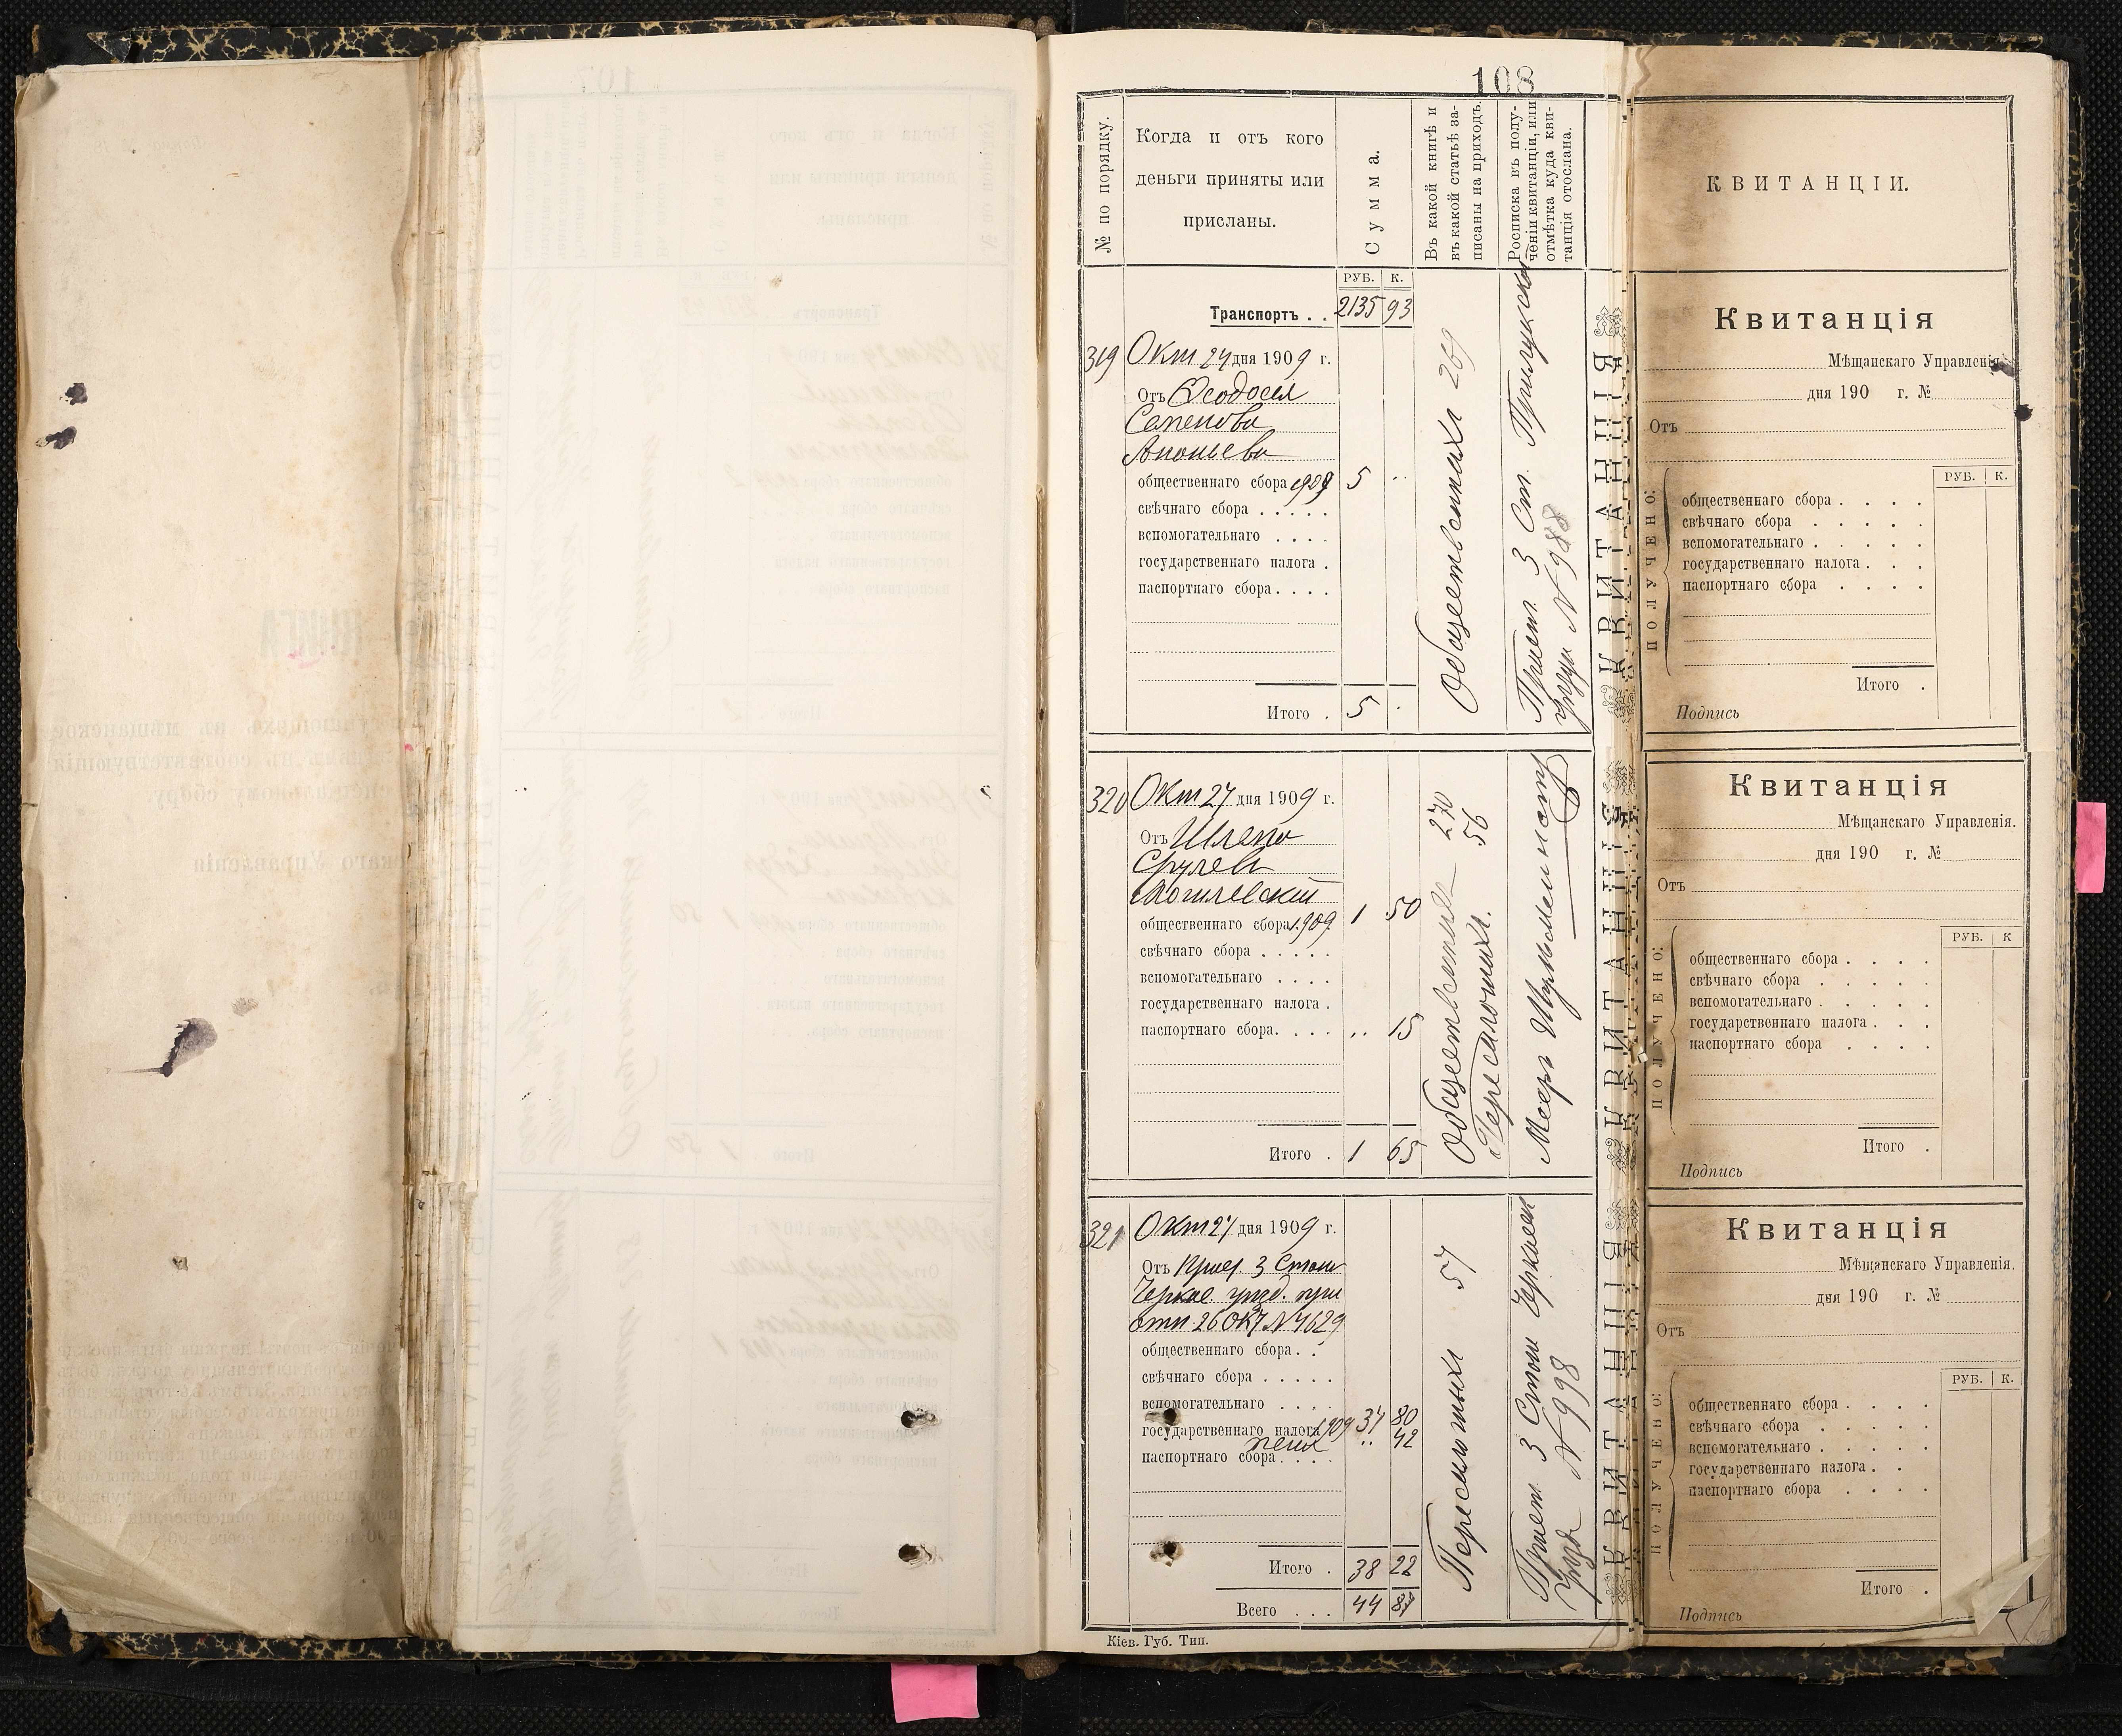 108
№ по порядку.
Когда и отъ кого
деньги приняты или
присланы.
Сумма.
Въ какой книгѣ и
въ какой статьѣ за-
писаны на приходъ.
Росписка въ полу-
ченіи квитанціи, или
отмѣтка куда кви-
танція отослана.
РУБ. К.
Транспортъ . . 2135 93
319 Окт 27 дня 1909 г.
Отъ Ѳеодосія
Семенова
Ананьева
общественнаго сбора 1909 5 ..
свѣчнаго сбора . . . . .
вспомогательнаго . . . .
государственнаго налога .
паспортнаго сбора . . . .
Итого . 5 .
Общественныхъ 269
Прист. 3 Ст. Прилуцкаго
уѣзда N 988
320 Окт 27 дня 1909 г.
Отъ Шлемо
Срулевъ
Могилевскій
общественнаго сбора 1909 1 50
свѣчнаго сбора . . . . .
вспомогательнаго . . . .
государственнаго налога .
паспортнаго сбора. . . . .. 15
Итого . 1 65
270
56
Мееръ
321 Окт 27 дня 1909 г.
Отъ Прист. 3 Стана
Черкас. уѣзд. при
отн. 26 Окт N 4629
общественнаго сбора . .
свѣчнаго сбора . . . . .
вспомогательнаго . . . .
государственнаго налога 1909 37 80
пеня .. 42
паспортнаго сбора . . . .
Итого . 38 22
Всего . . . 44 87
57
Прист. 3 Стана Черкасск
уѣзда N 998
Кіев. Губ. Тип.
КВИТАНЦІИ.
Квитанція
Мѣщанскаго Управленія.
дня 190 г. №
Отъ
ПОЛУЧЕНО:
РУБ. К.
общественнаго сбора . . . .
свѣчнаго сбора . . . . .
вспомогательнаго . . . . .
государственнаго налога . . .
паспортнаго сбора . . . .
Итого .
Подпись
Квитанція
Мѣщанскаго Управленія.
дня 190 г. №
Отъ
ПОЛУЧЕНО:
РУБ. К
общественнаго сбора . . . .
свѣчнаго сбора . . . . .
вспомогательнаго . . . . .
государственнаго налога . . .
паспортнаго сбора . . . .
Итого .
Подпись
Квитанція
Мѣщанскаго Управленія.
дня 190 г. №
Отъ
ПОЛУЧЕНО:
РУБ. К.
общественнаго сбора . . . .
свѣчнаго сбора . . . . .
вспомогательнаго . . . . .
государственнаго налога . .
паспортнаго сбора . . . .
Итого .
Подпись